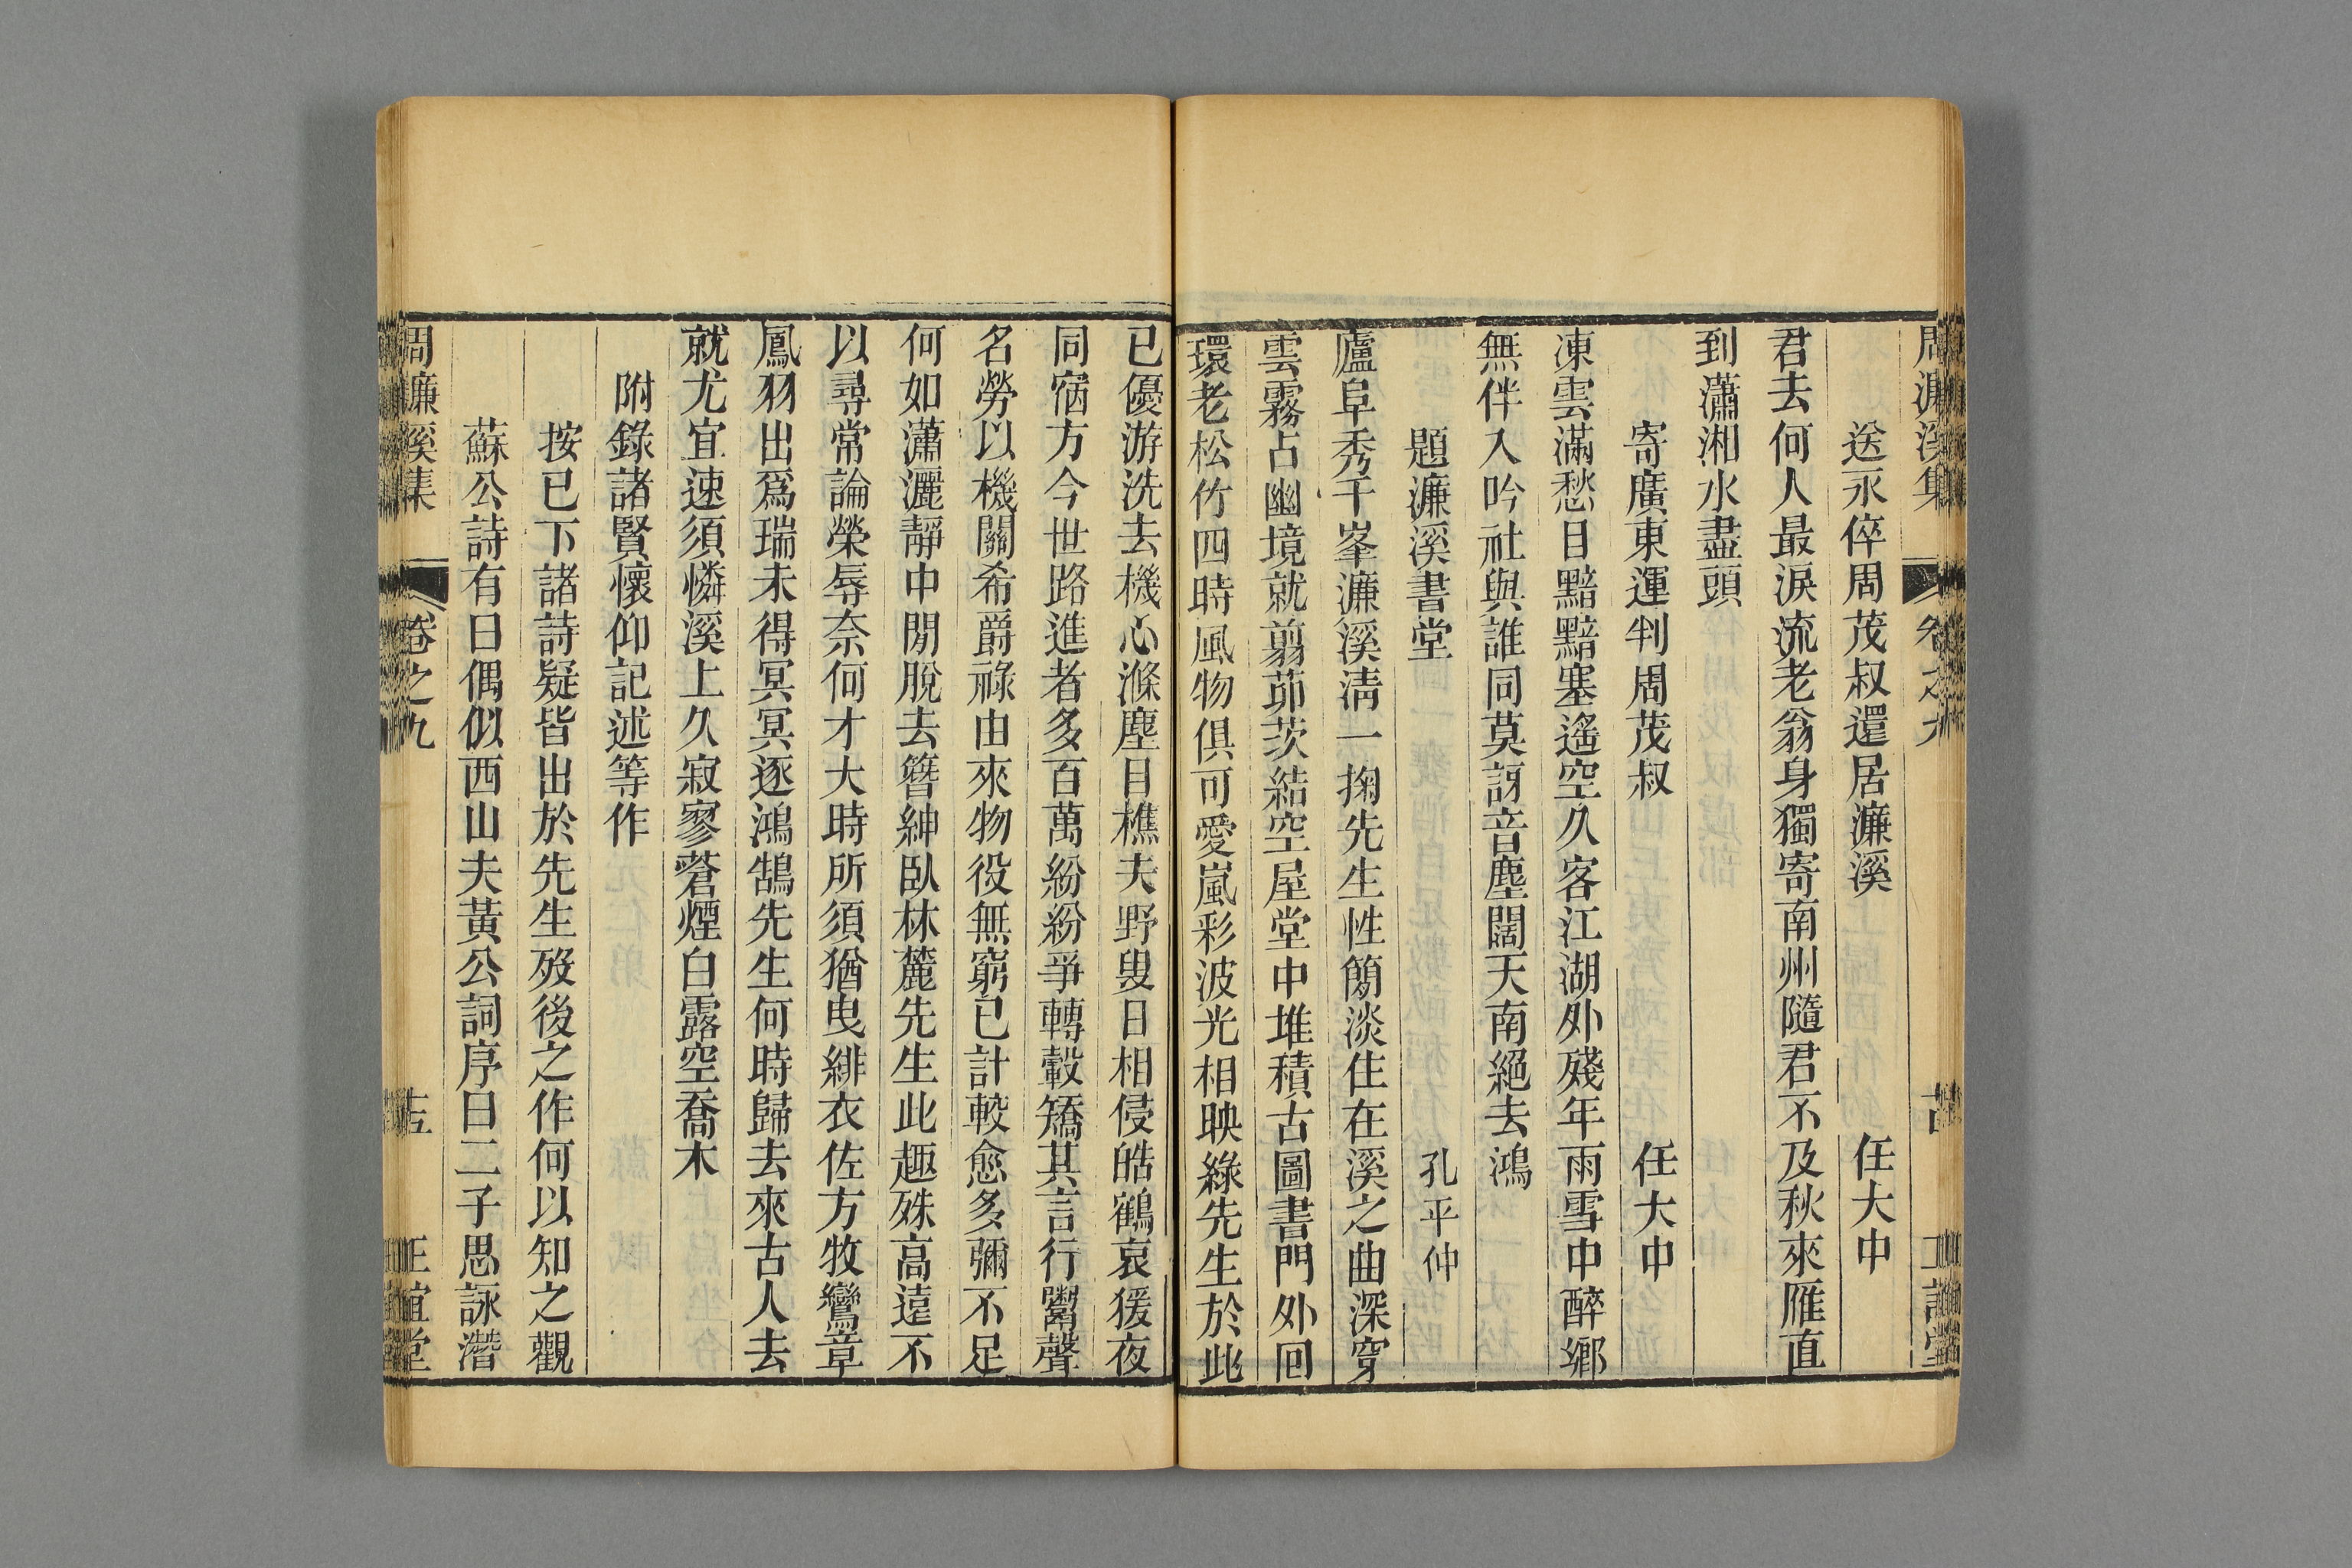 周濂溪集
卷之九
送永倅周茂叔還居濂溪
任大中
君去何人最淚流老翁身獨寄南州隨君不及秋來雁直
到瀟湘水盡頭
寄廣東運判周茂叔
任大中
凍雲滿愁日黯黯塞遙空久客江湖外殘年雨雪中醉鄉
無伴入吟社與誰同莫訝音塵闊天南絕去鴻
題濂溪書堂
孔平仲
廬阜秀千峯濂溪淸一掬先生性簡淡住在溪之曲深穿
雲霧占幽境就翦茆茨結空屋堂中堆積古圖書門外回
環老松竹四時風物俱可愛嵐彩波光相映綠先生於此
已優游洗去機心滌塵目樵夫野叟日相侵皓鶴哀猨夜
同宿方今世路進者多百萬紛紛爭轉轂矯其言行鬻聲
名勞以機關希爵祿由來物役無窮已計較愈多彌不足
何如瀟灑靜中閒脫去簪紳臥林麓先生此趣殊高遠不
以尋常論榮辱奈何才大時所須猶曳緋衣佐方牧鸞章
鳳羽出爲瑞未得冥冥逐鴻鵠先生何時歸去來古人去
就尤宜速須憐溪上久寂寥蒼煙白露空喬木
附錄諸賢懷仰記述等作
按已下諸詩疑皆出於先生歿後之作何以知之觀
蘇公詩有曰偶似西山夫黃公詞序曰二子思詠潛
周濂溪集
卷之九
正誼堂